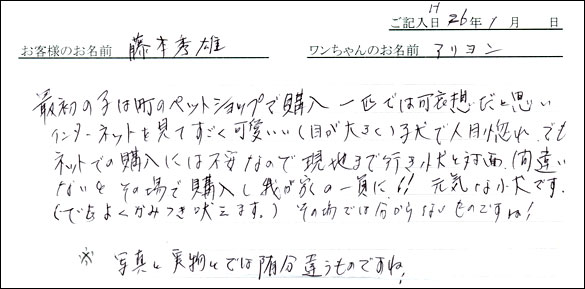 ご記入日 H26年1月 日
お客様のお名前 藤本秀雄 ワンちゃんのお名前 アリヨン
最初の子は町のペットショップで購入 一匹では可哀想だと思い
インターネットを見てすごく可愛いい(目が大きく)子犬で一目惚れ でも
ネットでの購入には不安なので現地まで行き小犬と対面 間違い
ないとその場で購入し我が家の一員に!! 元気な小犬です.
(でもよくかみつき吠えます.) その場では分からないものですね!
※ 写真と実物とでは随分違うものですね!